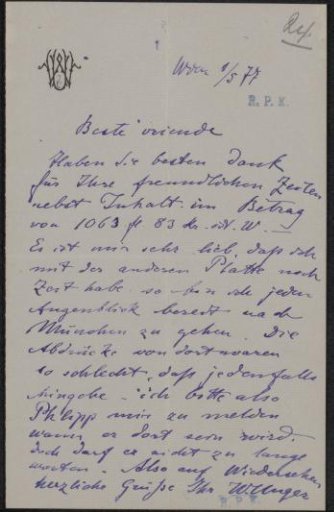 24
Wien 1/5 77
R.P.K.
Beste vriende
Haben Sie besten Dank
für Ihre freundlichen Zeilen
nebst Inhalt im Betrag
von 1063 fl 83 kr. öst. W.
Es ist mir sehr lieb, daß ich
mit der anderen Platte noch
Zeit habe. so bin ich jeden
Augenblick bereit nach
München zu gehen. Die
Abdrücke von dort waren
so schlecht, daß jedenfalls
hingehe. ich bitte also
Philipp mir zu melden
wann er dort sein wird.
doch darf er nicht zu lange
warten. Also auf Wiedersehen
herzliche Grüße Ihr W. Unger
R.P.K.